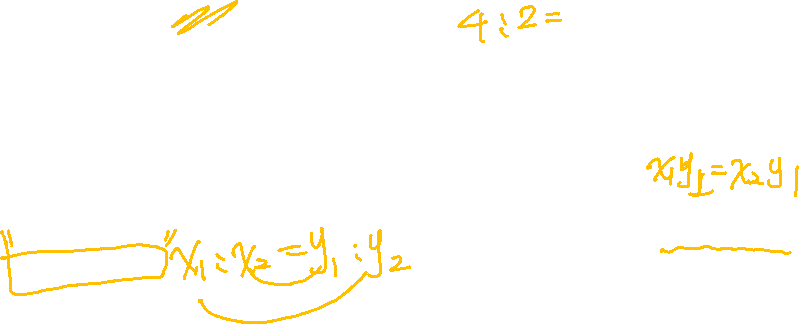 4:2=
x₁y₁=x₂y₁
" " x₁:x₂=y₁:y₂